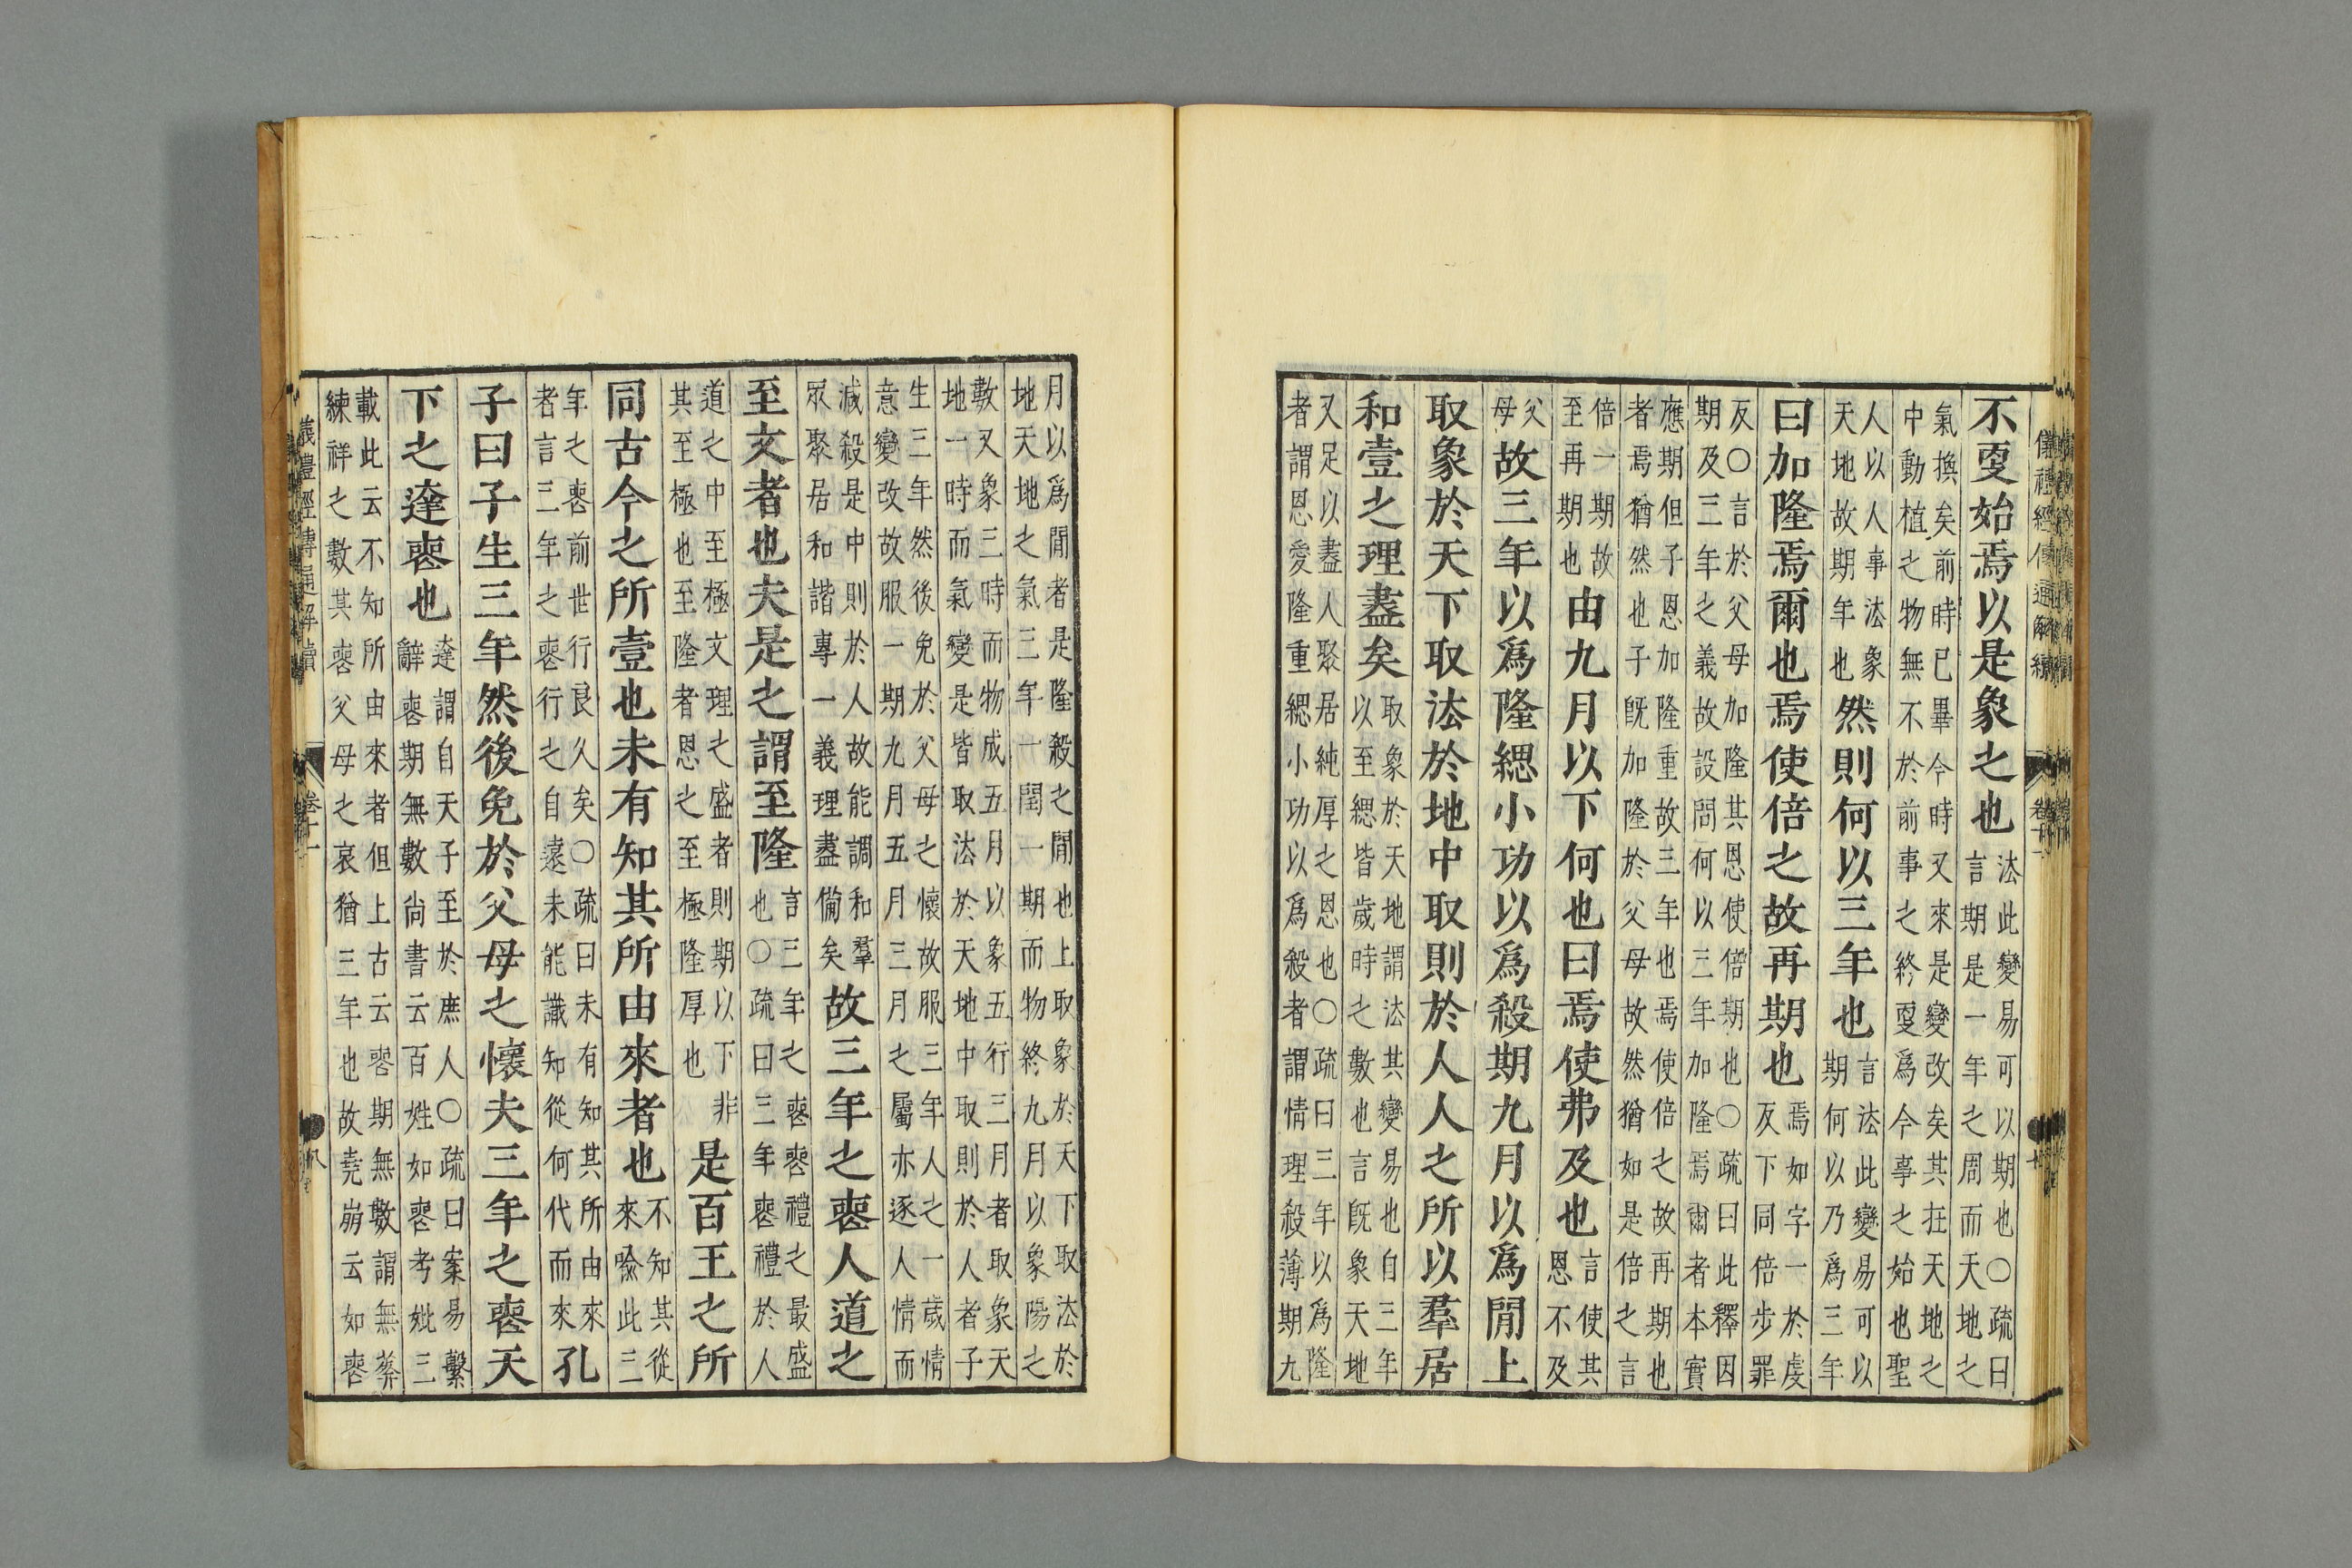 儀禮經傳通解續 卷十一
不更始焉以是象之也
法此變易可以期也〇疏曰
言期是一年之周而天地之
氣換矣前時已畢今時又來是變改矣其在天地之
中動植之物無不於前事之終更爲今事之始也聖
人以人事法象
天地故期年也
然則何以三年也
言法此變易可以
期何以乃爲三年
曰加隆焉爾也焉使倍之故再期也
焉如字一於虔
反下同倍步罪
反〇言於父母加隆其恩使倍期也〇疏曰此釋因
期及三年之義故設問何以三年加隆焉爾者本實
應期但子恩加隆重故三年也焉使倍之故再期也
者焉猶然也子旣加隆於父母故然猶如是倍之言
倍一期故
至再期也
由九月以下何也曰焉使弗及也
言使其
恩不及
父
母
故三年以爲隆緦小功以爲殺期九月以爲閒上
取象於天下取法於地中取則於人人之所以羣居
和壹之理盡矣
取象於天地謂法其變易也自三年
以至緦皆歲時之數也言旣象天地
又足以盡人聚居純厚之恩也〇疏曰三年以爲隆
者謂恩愛隆重緦小功以爲殺者謂情理殺薄期九
月以爲閒者是隆殺之閒也上取象於天下取法於
地天地之氣三年一閏一期而物終九月以象陽之
數又象三時而物成五月以象五行三月者取象天
地一時而氣變是皆取法於天地中取則於人者子
生三年然後免於父母之懷故服三年人之一歲情
意變改故服一期九月五月三月之屬亦逐人情而
減殺是中則於人故能調和羣
衆聚居和諧專一義理盡備矣
故三年之喪人道之
至文者也夫是之謂至隆
言三年之喪喪禮之最盛
也〇疏曰三年喪禮於人
道之中至極文理之盛者則期以下非
其至極也至隆者恩之至極隆厚也
是百王之所
同古今之所壹也未有知其所由來者也
不知其從
來喻此三
年之喪前世行良久矣〇疏曰未有知其所由來
者言三年之喪行之自遠未能識知從何代而來
孔
子曰子生三年然後免於父母之懷夫三年之喪天
下之達喪也
達謂自天子至於庶人〇疏曰案易繫
辭喪期無數尚書云百姓如喪考妣三
載此云不知所由來者但上古云喪期無數謂無葬
練祥之數其喪父母之哀猶三年也故堯崩云如喪
儀禮經傳通解續 卷十一 八